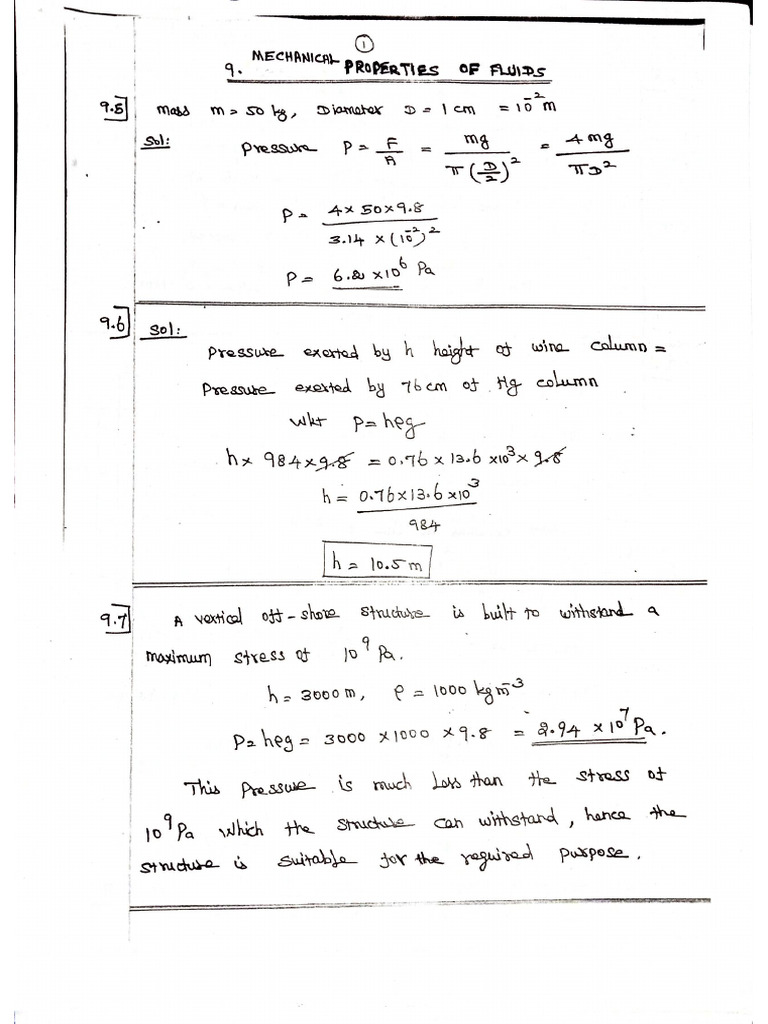 ①
9. MECHANICAL PROPERTIES OF FLUIDS
9.5] Mass m = 50 kg, Diameter D = 1 cm = 10⁻² m
Sol: Pressure P = F/A = mg/π(D/2)² = 4mg/πD²
P = 4 × 50 × 9.8 / 3.14 × (10⁻²)²
P = 6.2 × 10⁶ Pa
9.6] Sol:
Pressure exerted by h height of wine column =
Pressure exerted by 76 cm of Hg column
wkt P = hρg
h × 984 × 9.8 = 0.76 × 13.6 × 10³ × 9.8
h = 0.76 × 13.6 × 10³ / 984
h = 10.5 m
9.7] A vertical off-shore structure is built to withstand a
maximum stress of 10⁹ Pa.
h = 3000 m, ρ = 1000 kg m⁻³
P = hρg = 3000 × 1000 × 9.8 = 2.94 × 10⁷ Pa.
This Pressure is much Less than the stress of
10⁹ Pa which the structure can withstand, hence the
structure is suitable for the required purpose.